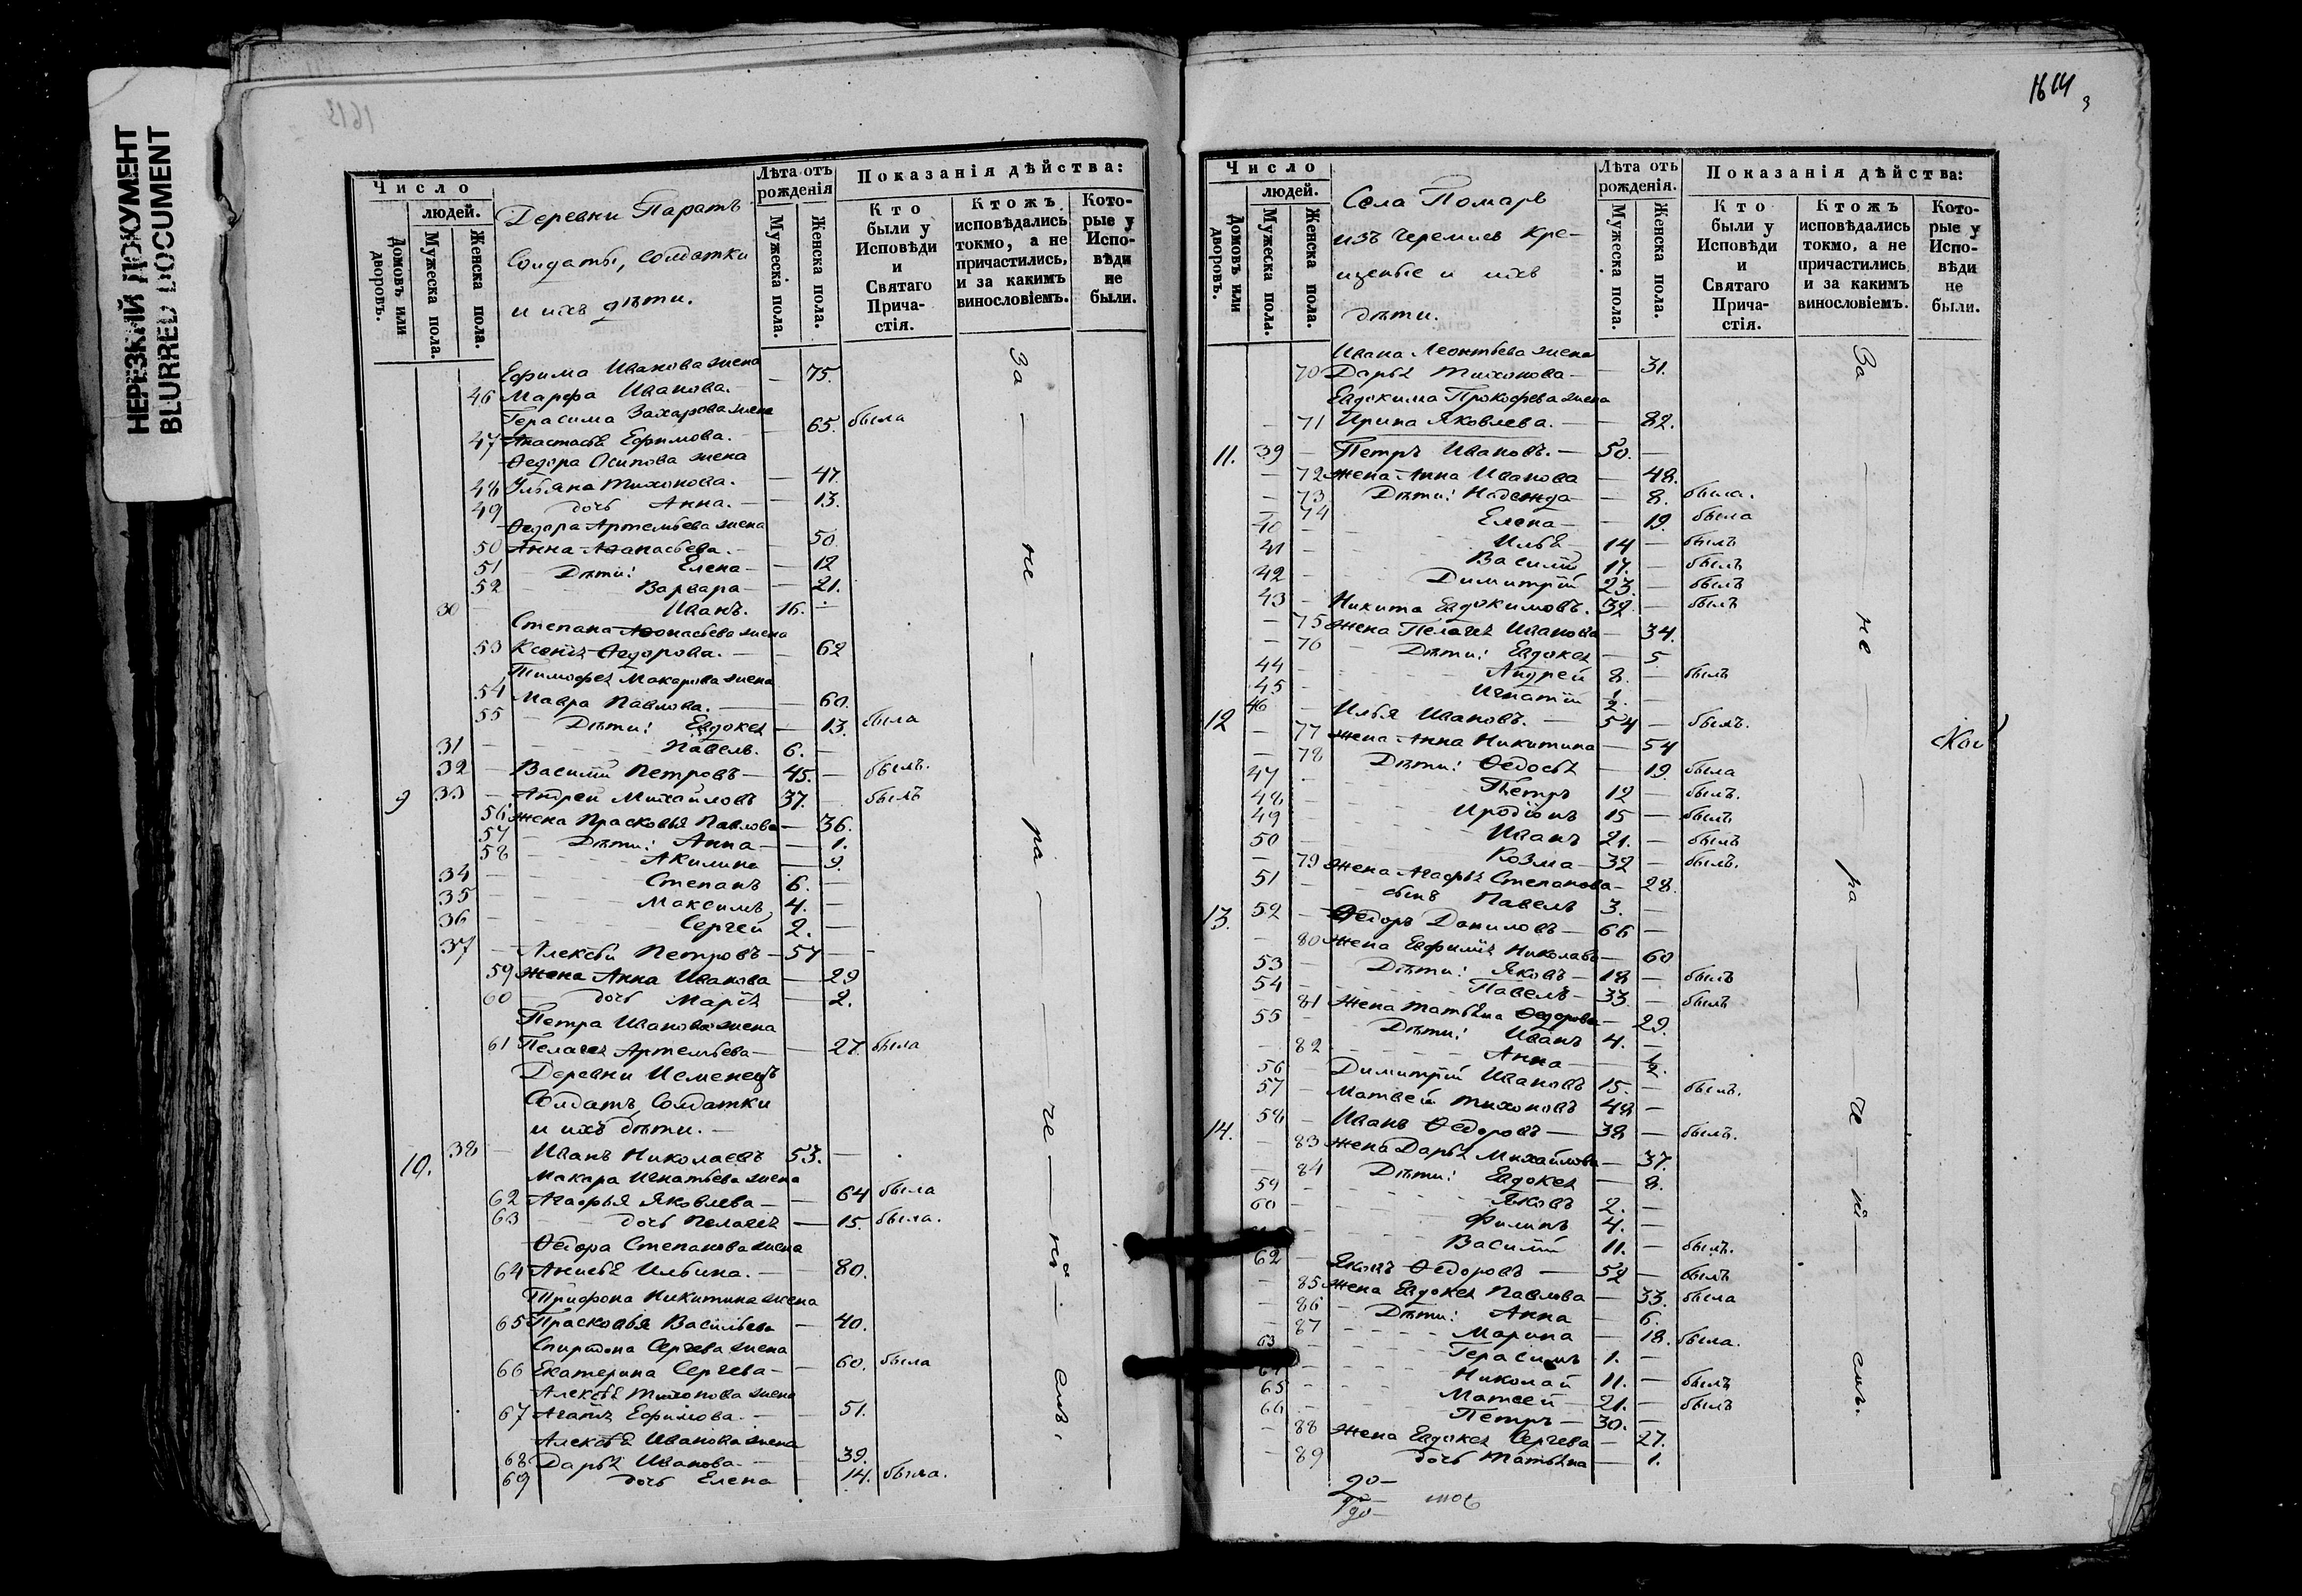 НЕРЕЗКИЙ ДОКУМЕНТ
BLURRED DOCUMENT
1613
Число
людей.
Домовъ или дворовъ.
Мужеска пола.
Женска пола.
Деревни Паратъ
Солдаты, солдатки
и ихъ дѣти.
Лѣта отъ рожденія
Мужеска пола.
Женска пола.
Показанія дѣйства:
Кто были у Исповѣди и Святаго Причастія.
Ктожъ исповѣдались токмо, а не причастились, и за какимъ винословіемъ.
Которые у Исповѣди не были.
За — не — ра — че — ні — емъ.
Ефима Иванова жена
46 Марфа Иванова. — 75.
Герасима Захарова жена
47 Анастасья Ефимова. — 65. была
Ѳедора Осипова жена
48 Ульяна Тихонова. — 47.
49 дочь Анна. — 13.
Ѳедора Артемьева жена
50 Анна Аѳанасьева. — 50.
51 Дѣти: Елена — 12
52 Варвара — 21.
30 Иванъ. 16. —
Степана Аѳонасьева жена
53 Ксенія Ѳедорова. — 62
Тимофея Макарова жена
54 Мавра Павлова. — 60.
55 Дѣти: Евдокея — 13. была
31 Павелъ. 6. —
32 Василій Петровъ — 45. — былъ.
9 33 Андрей Михайловъ 37. — былъ
56 жена Прасковья Павлова — 36.
57 Дѣти: Анна — 1.
58 Акилина — 9.
34 Степанъ 6. —
35 Максимъ 4. —
36 Сергей 2. —
37 Алексѣй Петровъ — 57 —
59 жена Анна Иванова — 29
60 дочь Марія — 2.
Петра Иванова жена
61 Пелагея Артемьева — 27. была
Деревни Исменецъ
Солдатъ, Солдатки
и ихъ дѣти. —
10. 38 Иванъ Николаевъ 53. —
Макара Игнатьева жена
62 Агафья Яковлева — 64 была
63 дочь Пелагея — 15. была.
Ѳедора Степанова жена
64 Анисья Ильина. — 80.
Трифона Никитина жена
65 Прасковья Васильева — 40.
Спиридона Сергева жена
66 Екатерина Сергева — 60. была
Алексѣя Тихонова жена
67 Агапія Ефимова. — 51.
Алексѣя Иванова жена
68 Дарья Иванова. — 39.
69 дочь Елена — 14. была.
1614
Число
людей.
Домовъ или дворовъ.
Мужеска пола.
Женска пола.
Села Помаръ
изъ черемисъ кре-
щеные и ихъ
дѣти.
Лѣта отъ рожденія.
Мужеска пола.
Женска пола.
Показанія дѣйства:
Кто были у Исповѣди и Святаго Причастія.
Ктожъ исповѣдались токмо, а не причастились и за какимъ винословіемъ.
Которые у Исповѣди не были.
За — не — ра — че — ні — емъ.
Ивана Леонтьева жена
70 Дарья Тихонова — 31.
Евдокима Прокофева жена
71 Ирина Яковлева. — 82.
11. 39 Петръ Ивановъ. — 50. —
72 жена Анна Иванова — 48.
73 Дѣти: Надежда — 8. была.
74 Елена — 19. была
40 Илья — 14 — былъ
41 Василій 17. — былъ
42 Димитрій 23. — былъ
43 Никита Евдокимовъ. 32. — былъ
75 жена Пелагея Иванова — 34.
76 Дѣти: Евдокея — 5
44 Андрей 8. — былъ
45 Игнатій 1/2. —
12 46 Илья Ивановъ. — 54 — былъ.
77 жена Анна Никитина — 54
78 Дѣти: Ѳедосья — 19. была
47 Петръ 12 — былъ.
48 Иродіонъ 15 — былъ
49 Иванъ 21. — былъ
50 Козма — 32 — былъ.
79 жена Агафья Степанова — 28.
51 сынъ Павелъ 3. —
13. 52 Ѳедоръ Даниловъ — 66 —
80 жена Евфимія Николава — 60
53 Дѣти: Яковъ — 18 — былъ
54 Павелъ — 33 — былъ
81 жена Татьяна Ѳедорова — 29.
55 Дѣти: Иванъ 4. —
82 Анна — 1/2.
56 Димитрій Ивановъ 15. — былъ.
57 Матвей Тихоновъ 48 —
14. 58 Иванъ Ѳедоровъ — 38 — былъ.
83 жена Дарья Михайлова — 37.
84 Дѣти: Евдокея — 8.
59 Яковъ 2. —
60 Филипъ 4. —
Василій 11. — былъ.
62 Яковъ Ѳедоровъ — 52 — былъ
85 жена Евдокея Павлова — 33. была
86 Дѣти: Анна — 6.
87 Марина — 18. была.
63 Герасимъ 1. —
64 Николай 11. — былъ
65 Матвей 21. — былъ
66 Петръ — 30. —
88 жена Евдокея Сергева — 27.
89 дочь Татьяна — 1.